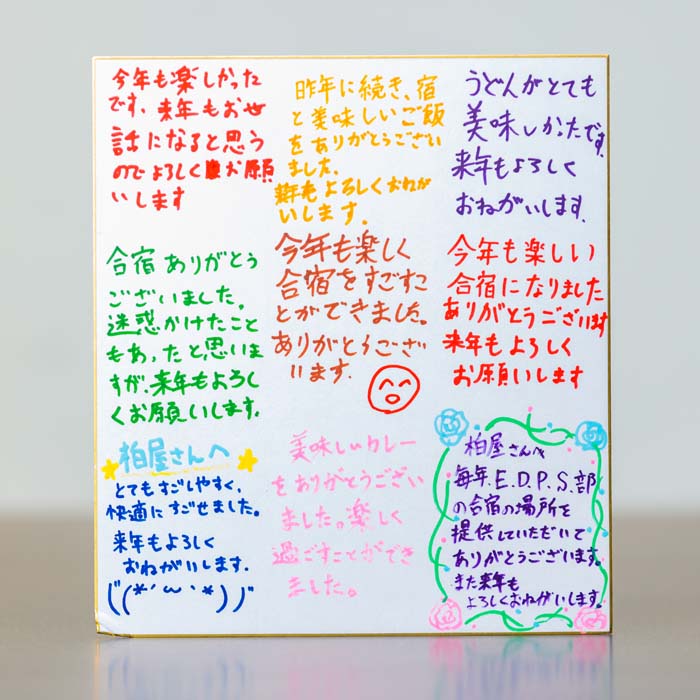 今年も楽しかった
です、来年もお世
話になると思う
のでよろしくお願
いします
昨年に続き、宿
と美味しいご飯
をありがとうござい
ました。
来年もよろしくおねが
いします。
うどんがとても
美味しかたです。
来年もよろしく
おねがいします。
合宿ありがとう
ございました。
迷惑かけたこと
もあったと思いま
すが、来年もよろし
くお願いします。
今年も楽しく
合宿をすごすこ
とができました。
ありがとうござ
います。
今年も楽しい
合宿になりました
ありがとうございます
来年もよろしく
お願いします
柏屋さんへ
とてもすごしやすく、
快適にすごせました。
来年もよろしく
おねがいします。
(*´ω`*)
美味しいカレー
をありがとうござい
ました。楽しく
過ごすことができ
ました。
柏屋さんへ
毎年、E.D.P.S.部
の合宿の場所を
提供していただいて
ありがとうございます。
また来年も
よろしくおねがいします。